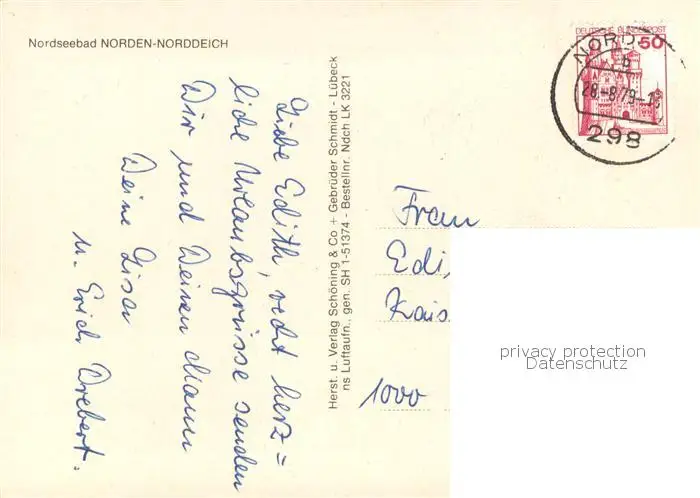 Nordseebad NORDEN-NORDDEICH
DEUTSCHE BUNDESPOST
50
NORD
b
28.-8.79-
298
Liebe Edith, recht herz=
liche Urlaubsgrüsse senden
Dir und Deinen Mann
Deine Lisa
u. Erich
Herst. u. Verlag Schöning & Co + Gebrüder Schmidt - Lübeck
ns Luftaufn., gen. SH 1-51374 - Bestellnr. Ndch LK 3221
Frau
Edi
Kais
1000
privacy protection
Datenschutz